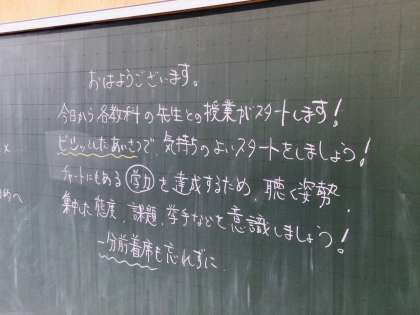 おはようございます。
今日から各教科の先生との授業がスタートします!
ピシッとしたあいさつで、気持ちのよいスタートをしましょう!
チャートにもある学力を達成するため、聴く姿勢、
集中した態度、課題、挙手などを意識しましょう!
一分前着席も忘れずに